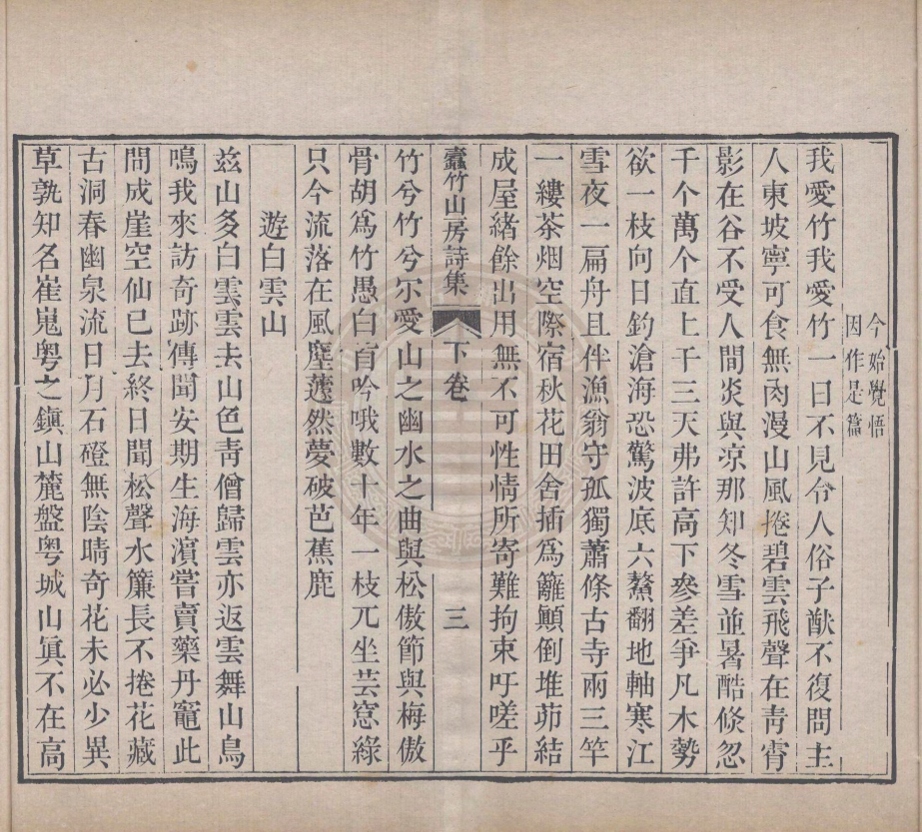 今始覺悟
因作是篇
我愛竹我愛竹一日不見令人俗子猷不復問主
人東坡寧可食無肉漫山風捲碧雲飛聲在青霄
影在谷不受人間炎與凉那知冬雪並暑酷倐忽
千个萬个直上千三天弗許高下參差爭凡木勢
欲一枝向日釣滄海恐驚波底六鰲翻地軸寒江
雪夜一扁舟且伴漁翁守孤獨蕭條古寺兩三竿
一縷茶烟空際宿秋花田舍插爲籬顚倒堆茆結
成屋緒餘出用無不可性情所寄難拘束吁嗟乎
蠹竹山房詩集 下卷 三
竹兮竹兮尓愛山之幽水之曲與松傲節與梅傲
骨胡爲竹愚白首吟哦數十年一枝兀坐芸窓綠
只今流落在風塵蘧然夢破芭蕉鹿
遊白雲山
兹山多白雲雲去山色靑僧歸雲亦返雲舞山鳥
鳴我來訪奇跡傳聞安期生海濱嘗賣藥丹竈此
間成崖空仙已去終日聞松聲水簾長不捲花藏
古洞春幽泉流日月石磴無陰晴奇花未必少異
草孰知名崔嵬粤之鎭山麓盤粤城山眞不在高